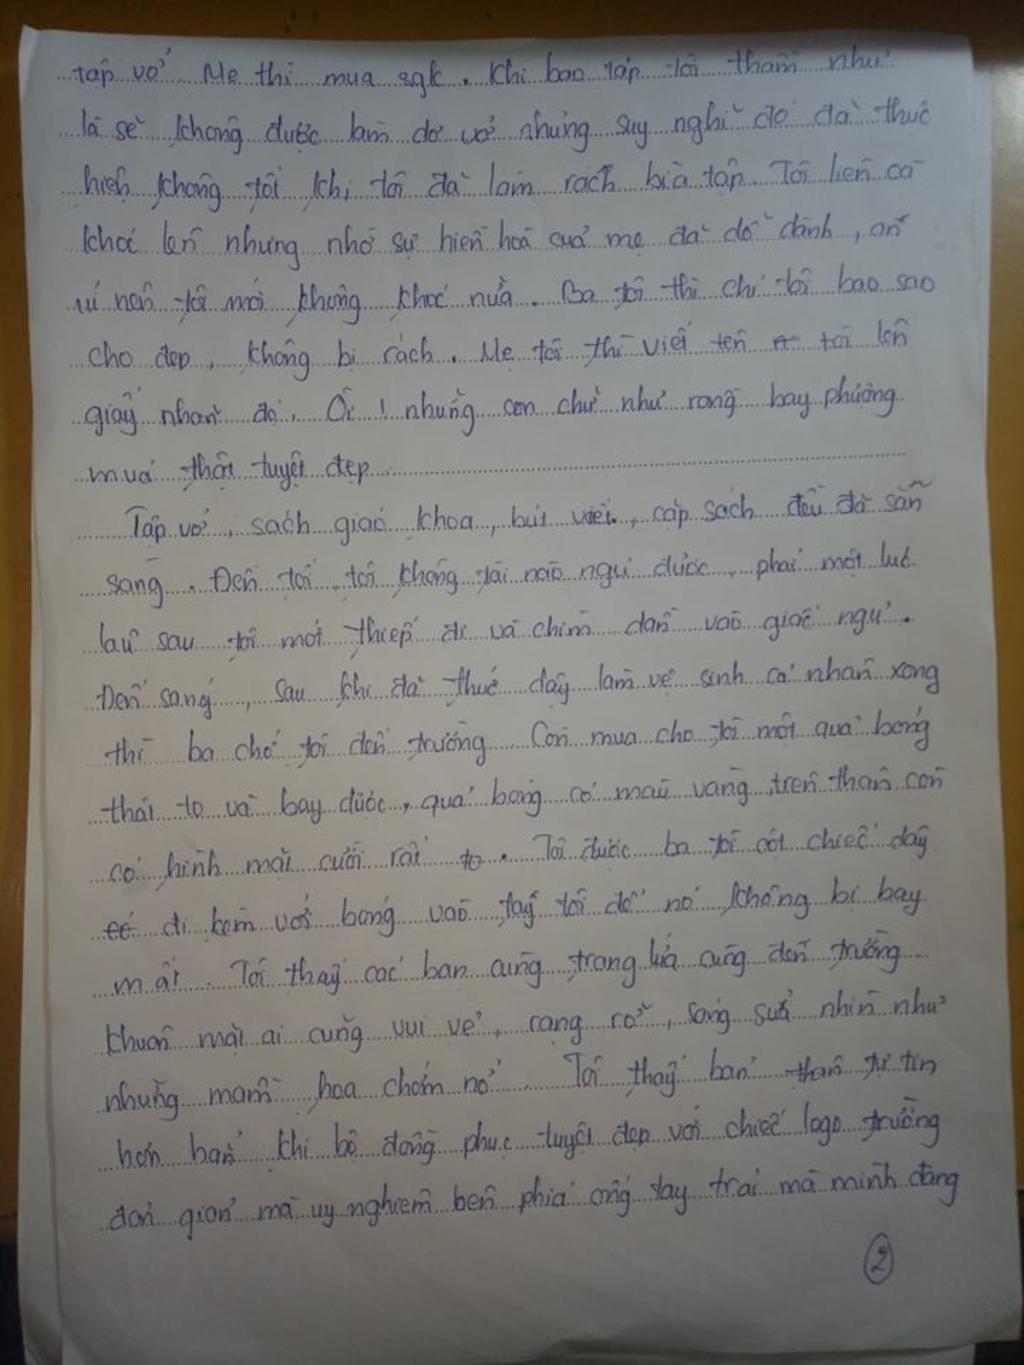 tập vở. Mẹ thì mua sgk. Khi bao tập tôi thầm như
là sẽ không được làm dơ vở nhưng suy nghĩ đó đã thực
hiện không tới khi tôi đã làm rách bìa tập. Tôi liền oà
khóc lên nhưng nhờ sự hiền hoà của mẹ đã dỗ dành, an
ủi nên tôi mới không khóc nữa. Ba tôi thì chỉ tôi bao sao
cho đẹp, không bị rách. Mẹ tôi thì viết tên tôi lên
giấy nhãn đó. Ôi! những con chữ như rồng bay phượng
múa thật tuyệt đẹp.
Tập vở, sách giáo khoa, bút viết, cặp sách đều đã sẵn
sàng. Đến tối, tôi không tài nào ngủ được, phải một lúc
lâu sau tôi mới thiếp đi và chìm dần vào giấc ngủ.
Đến sáng, sau khi đã thức dậy làm vệ sinh cá nhân xong
thì ba chở tôi đến trường. Còn mua cho tôi một quả bóng
thật to và bay được, quả bóng có màu vàng, trên thân còn
có hình mặt cười rất to. Tôi được ba tôi cột chiếc dây
có đi kèm với bóng vào tay tôi để nó không bị bay
mất. Tôi thấy các bạn cùng trang lứa cũng đến trường
khuôn mặt ai cũng vui vẻ, rạng rỡ, sáng sủa nhìn như
những mầm hoa chớm nở. Tôi thấy bản thân tự tin
hơn hẳn khi bộ đồng phục tuyệt đẹp với chiếc logo trường
đơn giản mà uy nghiêm bên phía ống tay trái mà mình đang
2